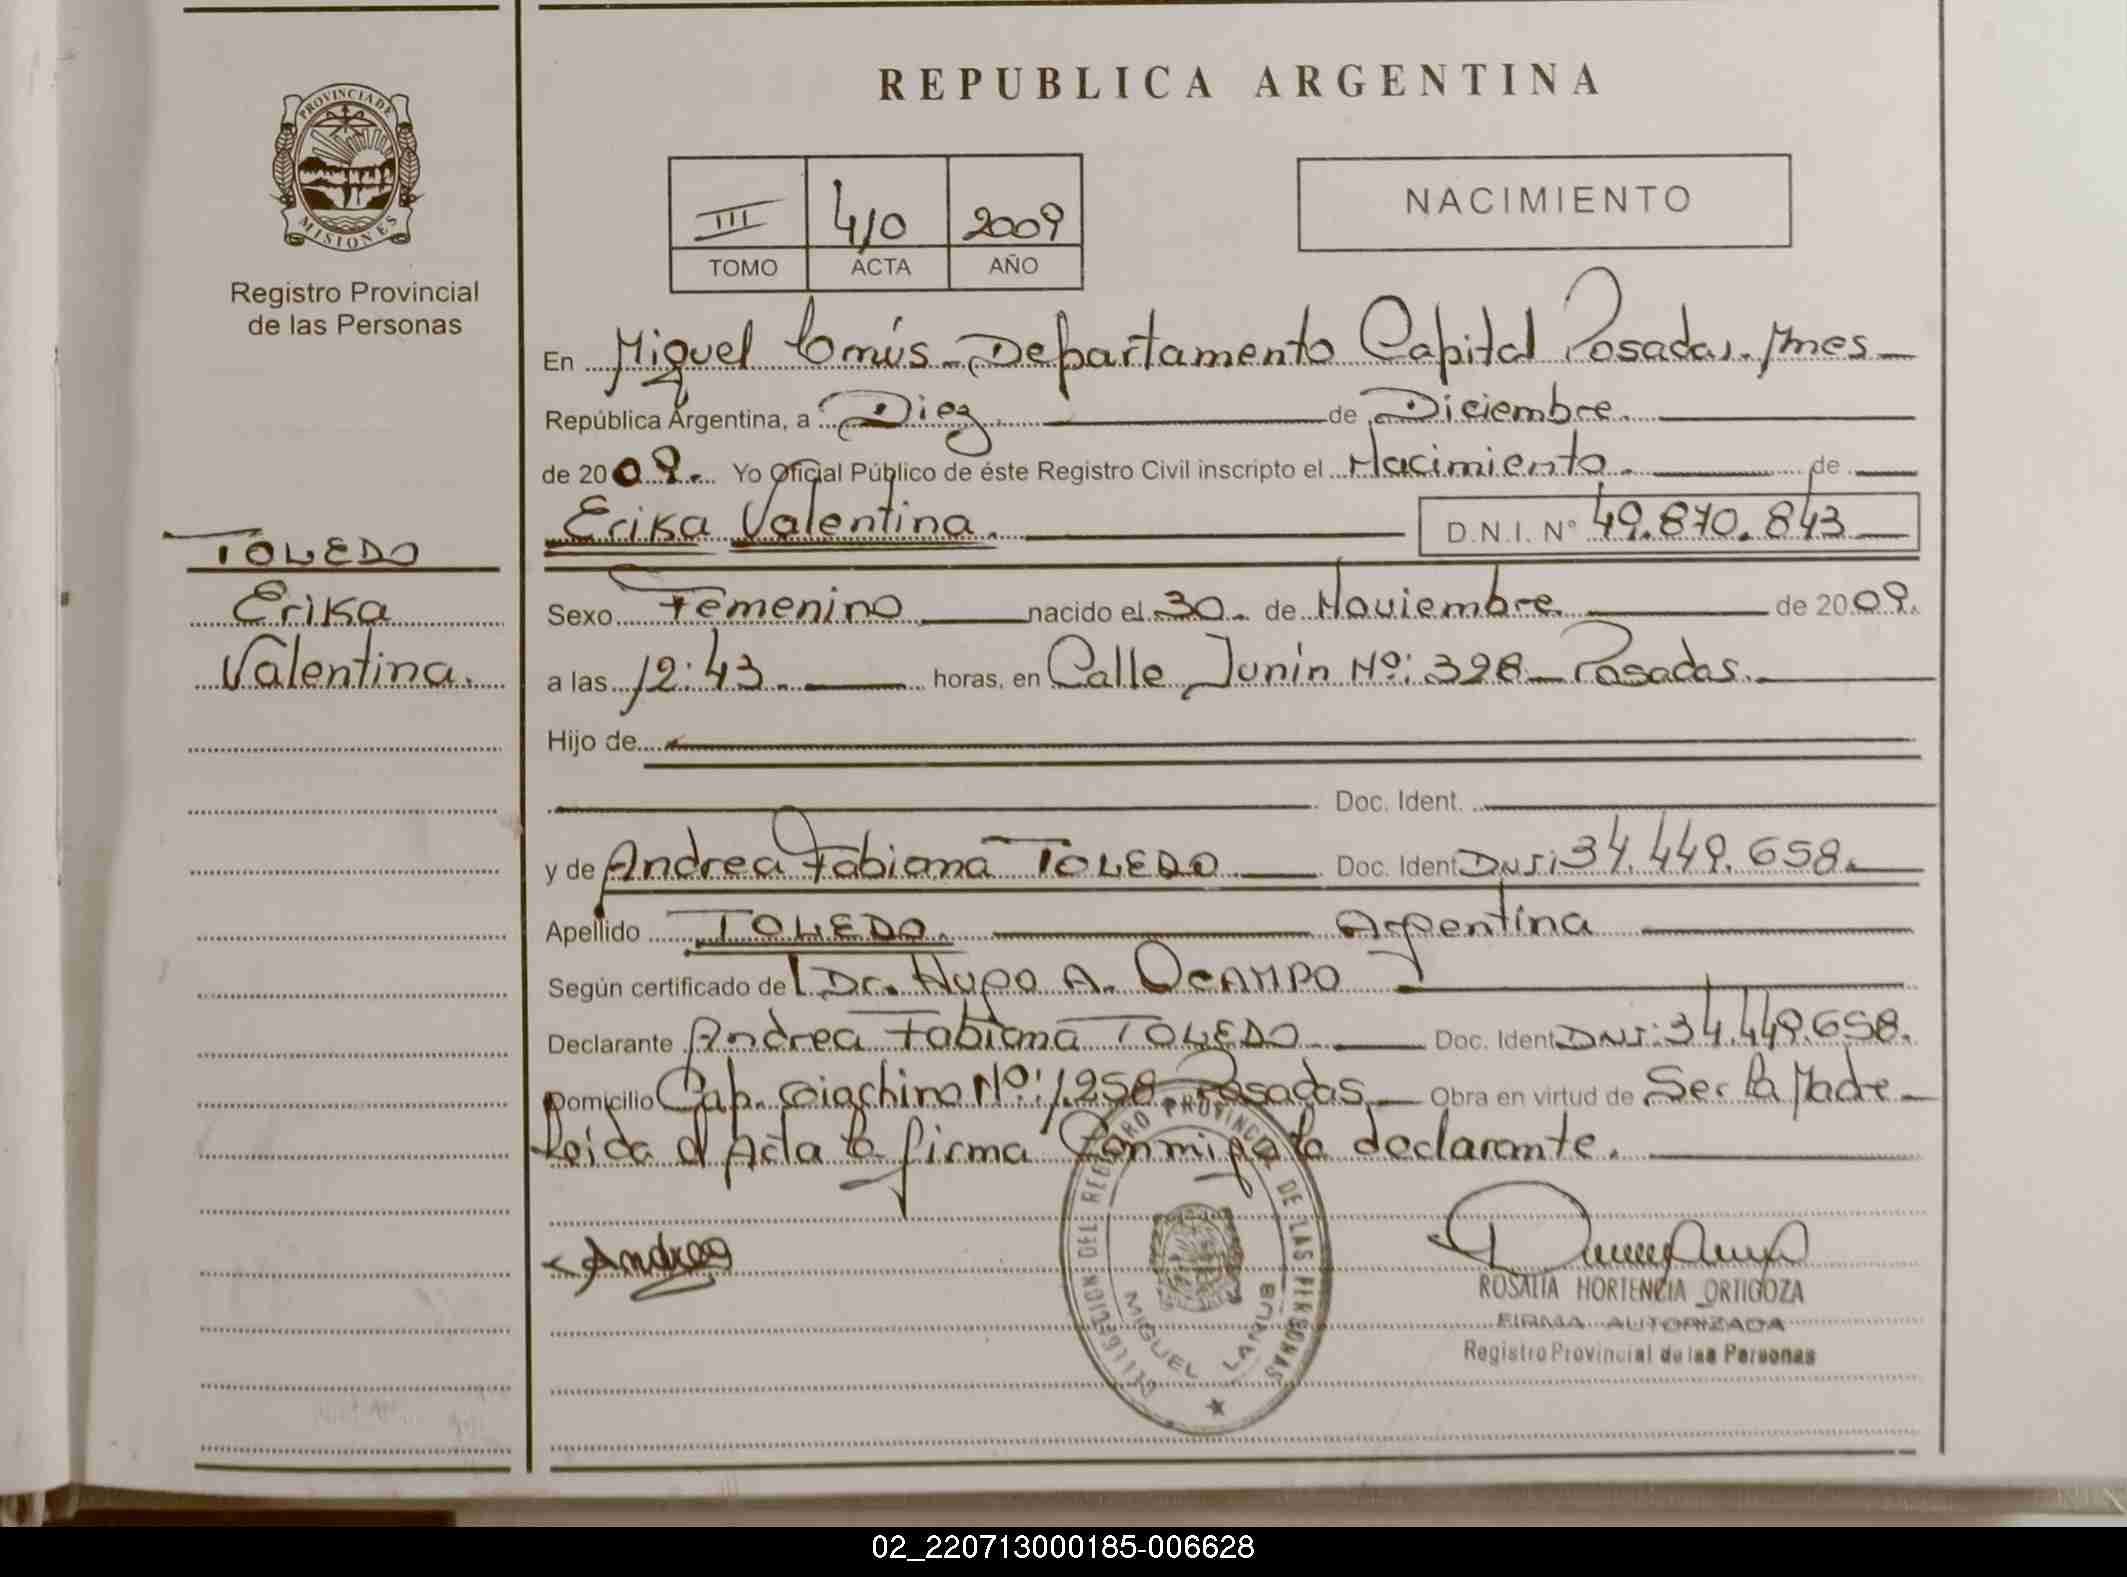 REPUBLICA ARGENTINA
PROVINCIA DE
MISIONES
Registro Provincial
de las Personas
III 410 2009
TOMO ACTA AÑO
NACIMIENTO
En Miguel Lanús - Departamento Capital Posadas. Mnes
República Argentina, a Diez de Diciembre
de 2009. Yo Oficial Público de éste Registro Civil inscripto el Nacimiento. de
Erika Valentina. D.N.I. Nº 49.870.843
TOLEDO
Erika
Valentina.
Sexo Femenino nacido el 30 de Noviembre de 2009.
a las 12:43 horas, en Calle Junín Nº: 328 - Posadas.
Hijo de
Doc. Ident.
y de Andrea Fabiana TOLEDO Doc. Ident DNI: 34.449.658.
Apellido TOLEDO. Argentina
Según certificado del Dr. Hugo A. OCAMPO
Declarante Andrea Fabiana TOLEDO. Doc. Ident DNI: 34.449.658.
Domicilio Cap. Giachino Nº: 1.258 Posadas Obra en virtud de Ser la Madre
Leida el Acta la firma Conmigo la declarante.
Andrea
DELEGACION DEL REGISTRO PROVINCIAL DE LAS PERSONAS
MIGUEL LANUS
ROSALIA HORTENCIA ORTIGOZA
FIRMA AUTORIZADA
Registro Provincial de las Personas
02_220713000185-006628